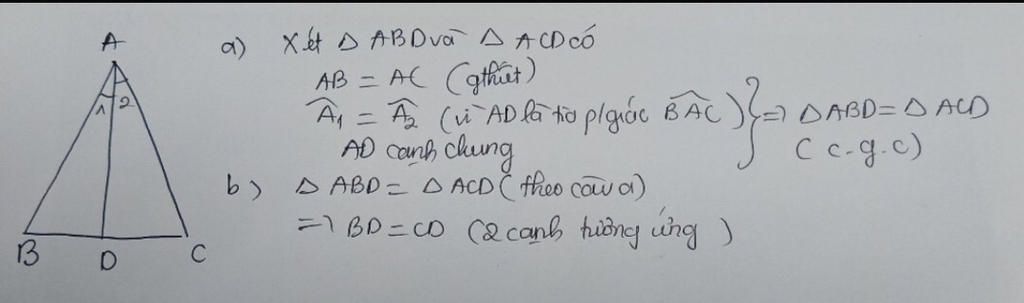 A
1 2
B D C
a) Xét △ ABD và △ ACD có
AB = AC (gthiết)
Â₁ = Â₂ (vì AD là tia p/giác BÂC) } => △ ABD = △ ACD
AD cạnh chung (c-g-c)
b) △ ABD = △ ACD (theo câu a)
=> BD = CD (2 cạnh tương ứng)